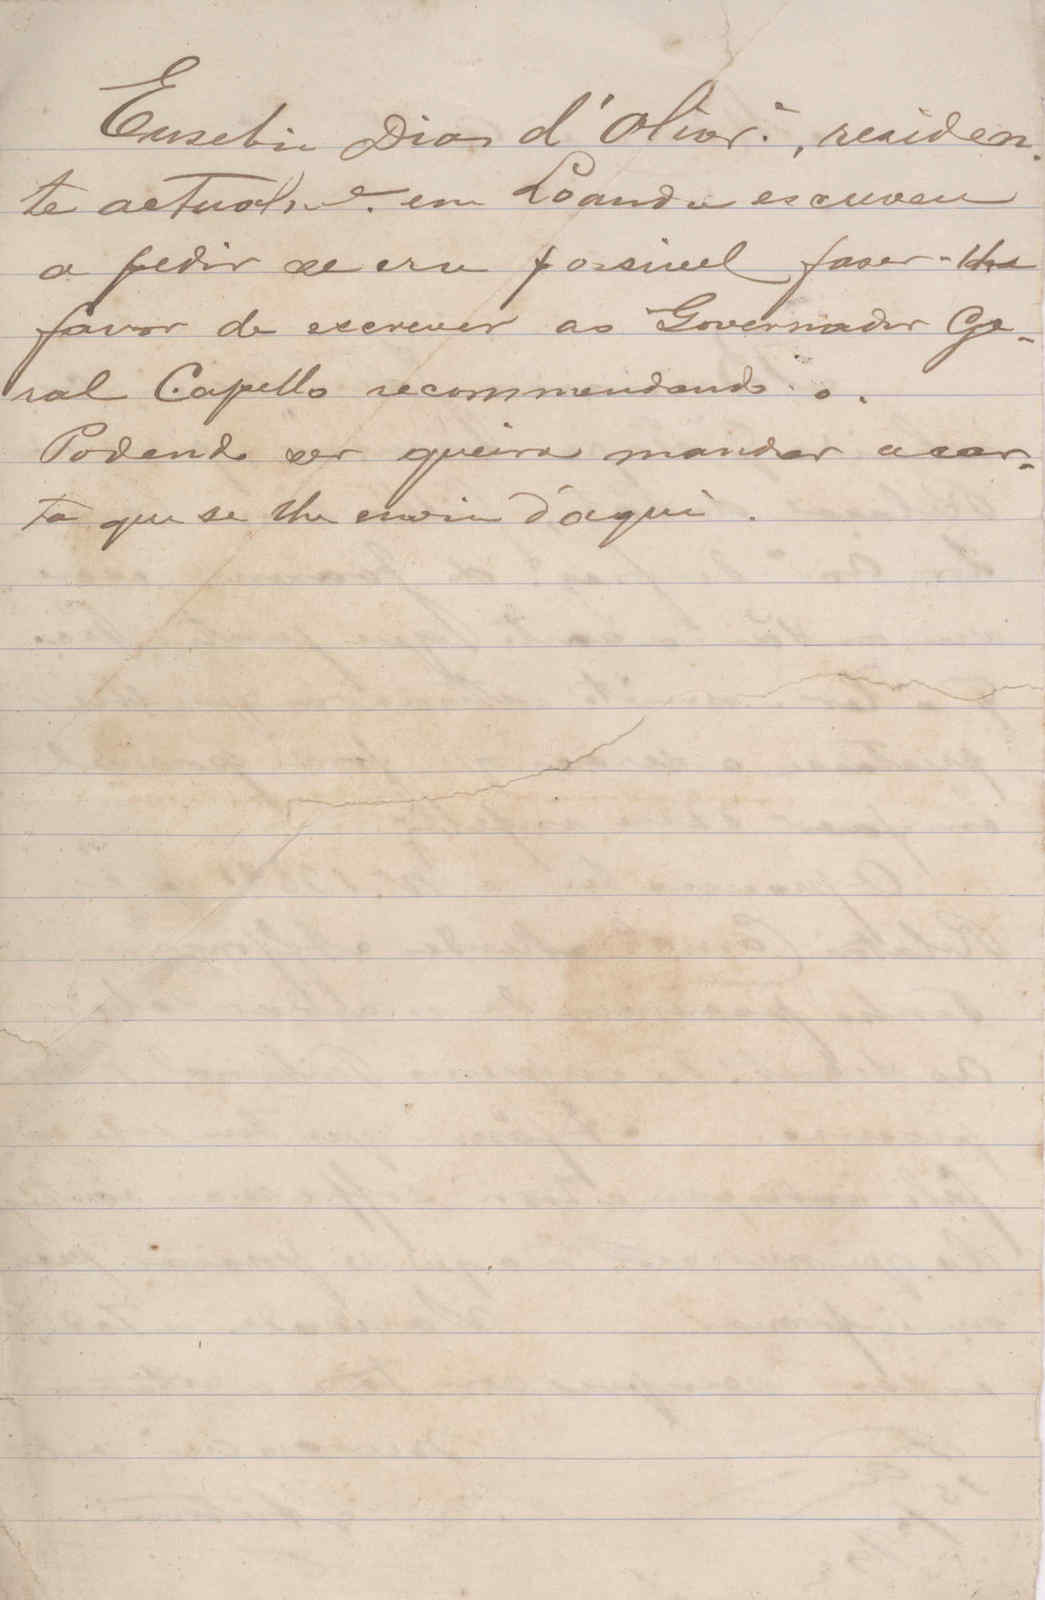 Eusebio Dias d'Olivr.ª, residen-
te actualm.e em Loanda escreveu
a pedir se era possivel faser-lhe
favor de escrever ao Governador Ge-
ral Capello recommendando-o.
Podendo ser queira mandar a car-
ta que se lhe envia d'aqui.